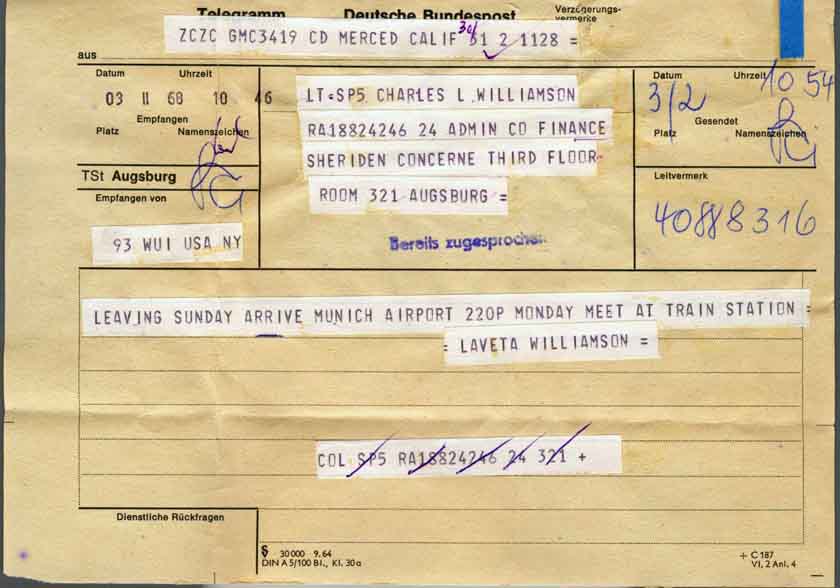 Telegramm Deutsche Bundespost Verzögerungs-
vermerke
ZCZC GMC3419 CD MERCED CALIF 31 2 1128 =
30/
aus
Datum Uhrzeit
03 II 68 10 46
Empfangen
Platz Namenszeichen
TSt Augsburg
Empfangen von
93 WUI USA NY
LT=SP5 CHARLES L WILLIAMSON
RA18824246 24 ADMIN CO FINANCE
SHERIDEN CONCERNE THIRD FLOOR
ROOM 321 AUGSBURG =
Bereits zugesprochen
Datum Uhrzeit
3/2 10 54
Gesendet
Platz Namenszeichen
Leitvermerk
40888316
LEAVING SUNDAY ARRIVE MUNICH AIRPORT 220P MONDAY MEET AT TRAIN STATION =
= LAVETA WILLIAMSON =
COL SP5 RA18824246 24 321 +
Dienstliche Rückfragen
30000 9.64
DIN A 5/100 Bl., Kl. 30a
+ C 187
VI, 2 Anl. 4